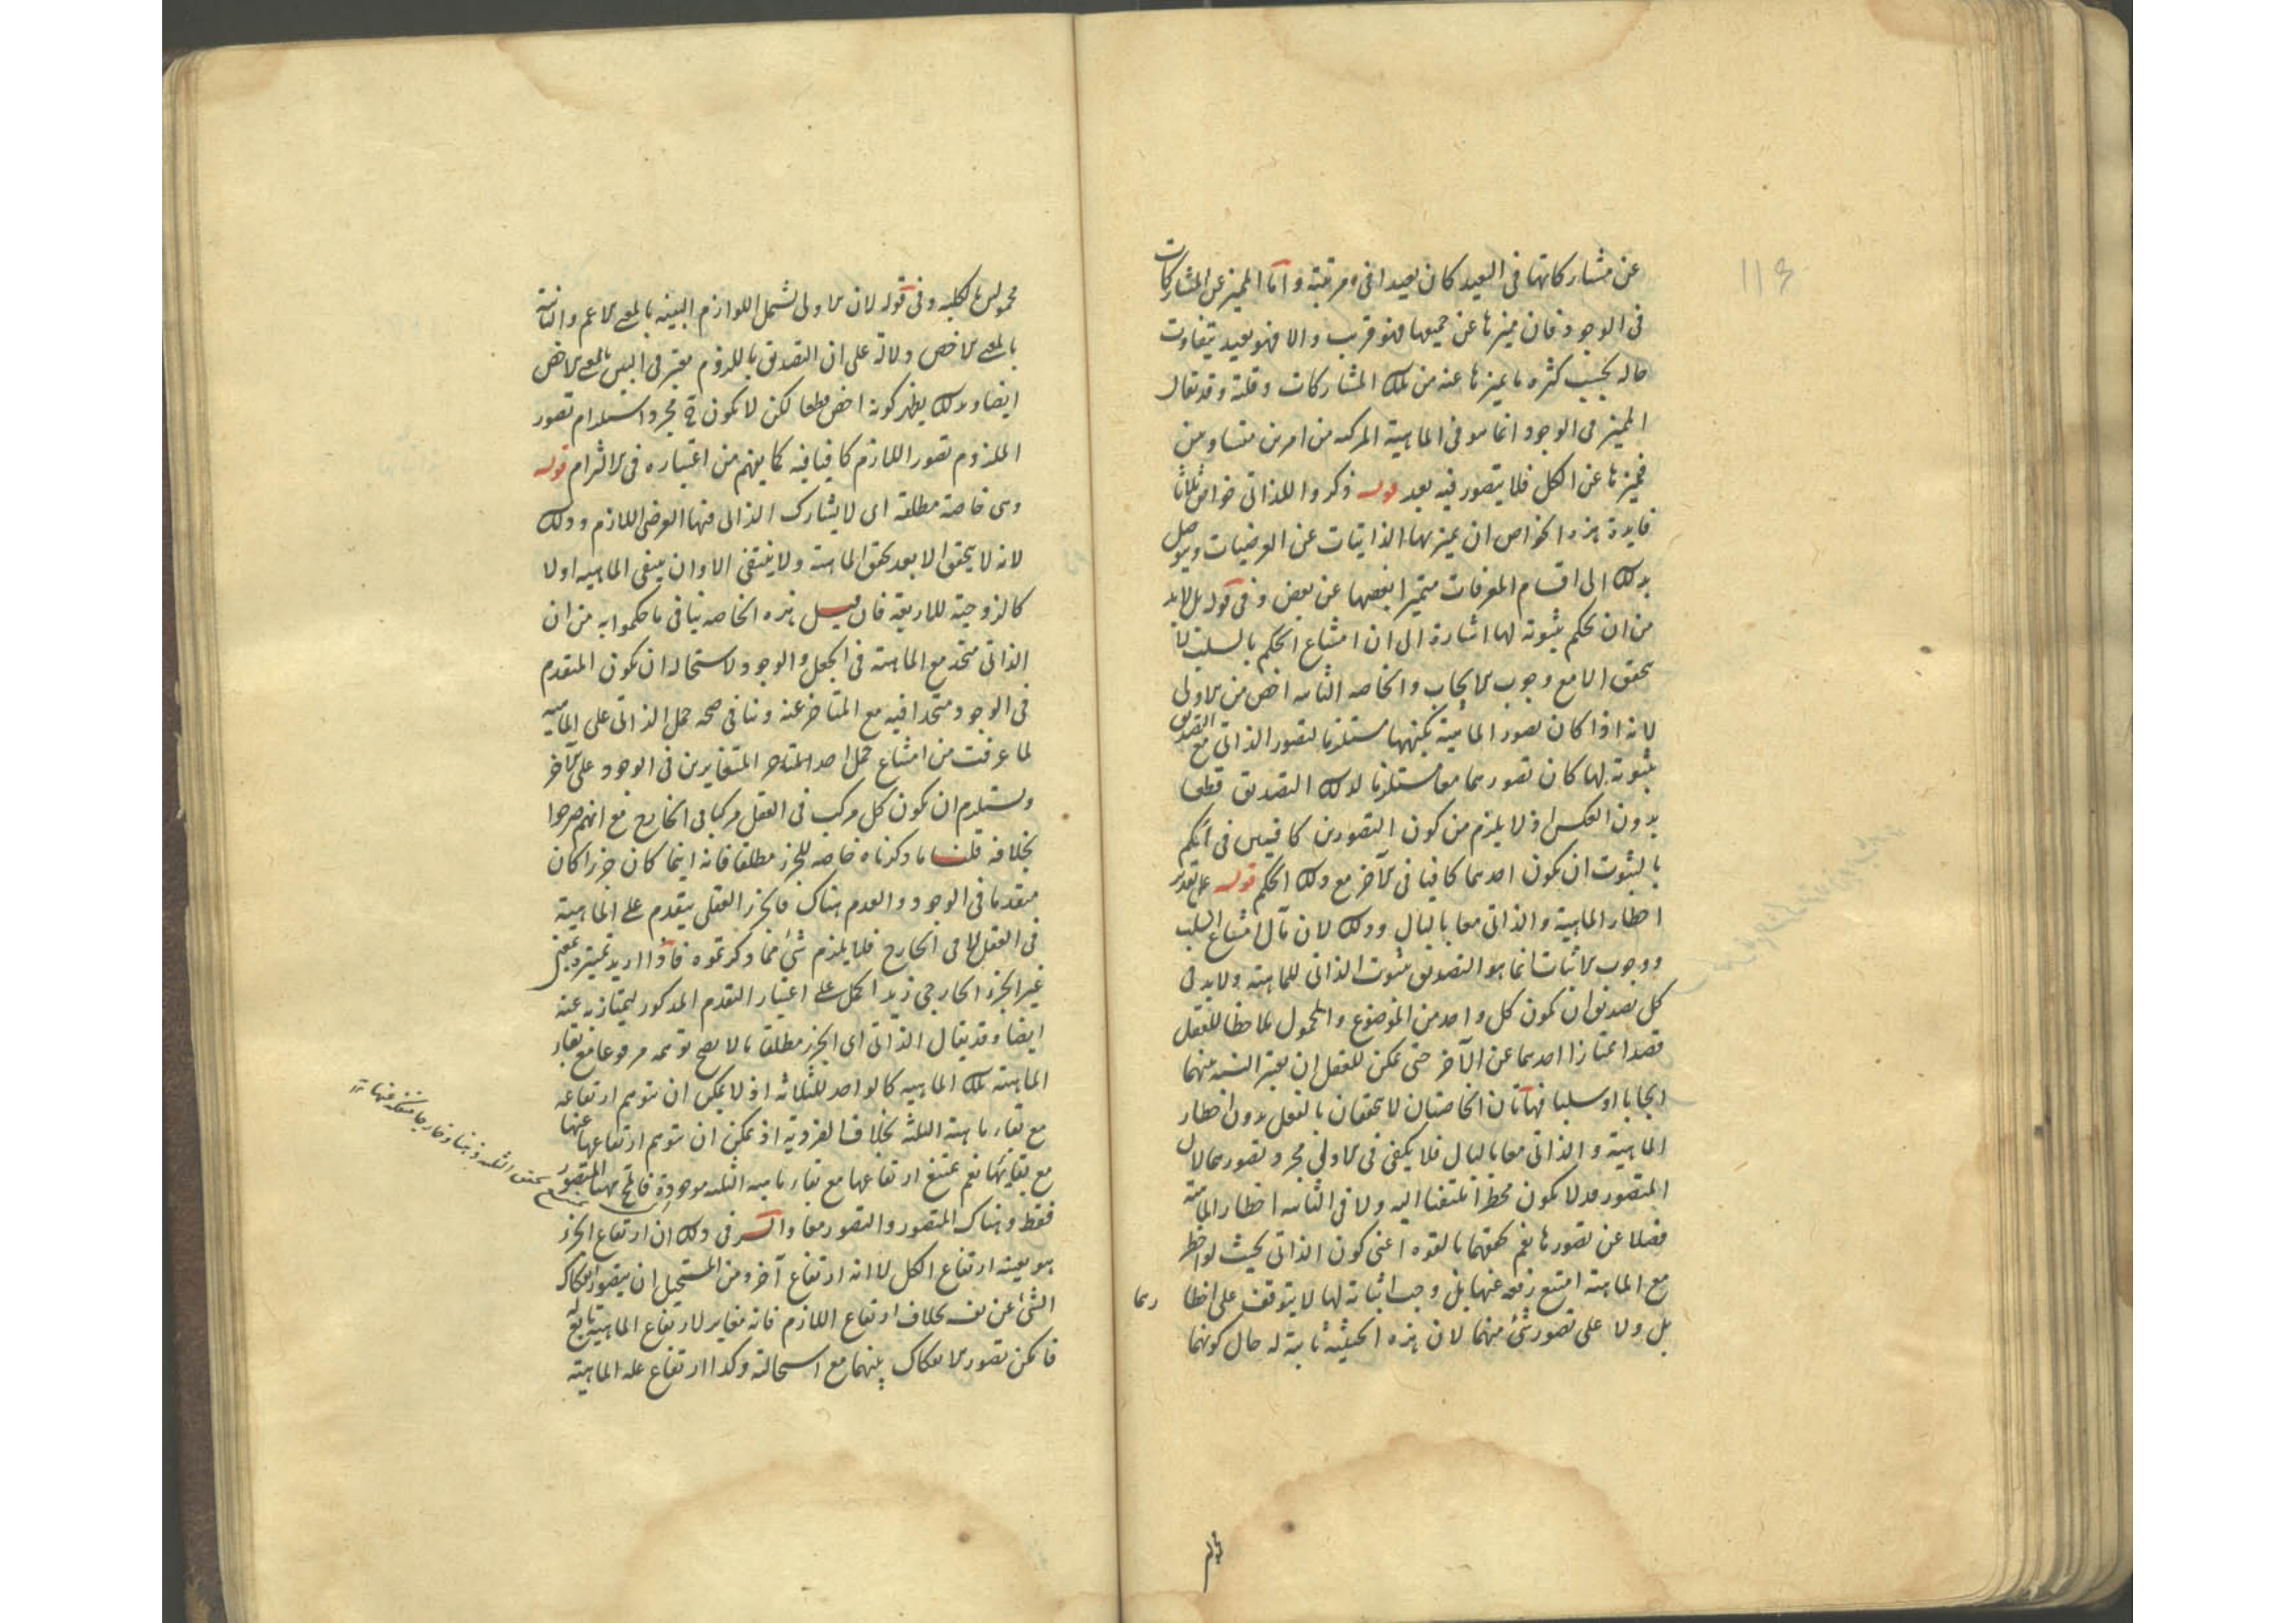 عن مشاركاتها فى البعيد كان بعيدا فى مرتبة واما المميز عن المشاركات
فى الوجود فان ميزها عن جميعها فهو قريب والا فهو بعيد يتفاوت
حاله بحسب كثرة ما يميزها عنه من تلك المشاركات وقلته وقد يقال
المميز فى الوجود انما هو فى الماهية المركبة من امرين متساويين
فيميزها عن الكل فلا يتصور فيه بعد قوله ذكروا للذاتى خواص ثلاثا
فايدة هذه الخواص ان يميز بها الذاتيات عن العرضيات ويتوصل
بذلك الى اقسام المعرفات متميزا بعضها عن بعض وفى قوله بل لا بد
من ان يحكم بثبوته لها اشارة الى ان امتناع الحكم بالسلب لا
يتحقق الا مع وجوب الايجاب والخاصة الثانية اخص من الاولى
لانه اذا كان تصور الماهية بكنهها مستلزما لتصور الذاتى مع التصديق
بثبوته لها كان تصورهما معا مستلزما لذلك التصديق قطعا
بدون العكس اذ لا يلزم من كون التصورين كافيين فى الحكم
بالثبوت ان يكون احدهما كافيا فى الآخر مع ذلك الحكم قوله على تقدير
اخطار الماهية والذاتى معا بالبال وذلك لان مآل امتناع السلب
ووجوب الاثبات انما هو التصديق بثبوت الذاتى للماهية ولا بد فى
كل تصديق ان يكون كل واحد من الموضوع والمحمول ملاحظا للعقل
قصدا ممتازا احدهما عن الآخر حتى يمكن للعقل ان يعتبر النسبة بينهما
ايجابا او سلبا فهاتان الخاصتان لا تتحققان بالفعل بدون اخطار
الماهية والذاتى معا بالبال فلا يكفى فى الاولى مجرد تصورهما لان
المتصور قد لا يكون مخطرا ملتفتا اليه ولا فى الثانية اخطار الماهية
فضلا عن تصورها نعم تحققهما بالقوة اعنى كون الذاتى بحيث لو اخطر
مع الماهية امتنع رفعه عنها بل وجب اثباته لها لا يتوقف على اخطا رهما
بل ولا على تصور شئ منهما لان هذه الحيثية ثابتة له حال كونهما
مجهولين بالكلية وفى قوله لان الاولى تشمل اللوازم البينة بالمعنى الاعم والثانية
بالمعنى الاخص دلالة على ان التصديق باللزوم معتبر فى البين بالمعنى الاخص
ايضا وبذلك يظهر كونه اخص قطعا لكن لا يكون ح مجرد استلزام تصور
الملزوم تصور اللازم كافيا فيه كما يفهم من اعتباره فى الالتزام قوله
وهى خاصة مطلقة اى لا يشارك الذاتى فيها العرضى اللازم وذلك
لانه لا يتحقق الا بعد تحقق الماهية ولا ينتفى الا وان ينتفى الماهية اولا
كالزوجية للاربعة فان قيل هذه الخاصة تنافى ما حكموا به من ان
الذاتى متحد مع الماهية فى الجعل والوجود لاستحالة ان يكون المتقدم
فى الوجود متحدا فيه مع المتاخر عنه وتنافى صحة حمل الذاتى على الماهية
لما عرفت من امتناع حمل احد المتغايرين فى الوجود على الآخر
وتستلزم ان يكون كل مركب فى العقل مركبا فى الخارج مع انهم صرحوا
بخلافه قلنا ما ذكرناه خاصة للجزء مطلقا فانه اينما كان جزءا كان
متقدما فى الوجود والعدم هناك فالجزء العقلى يتقدم على الماهية
فى العقل لا فى الخارج فلا يلزم شئ مما ذكرتموه فاذا اريد تمييزه عن
غير الجزء الخارجى زيد الحمل على اعتبار التقدم المذكور ليمتاز به عنه
ايضا وقد يقال الذاتى اى الجزء مطلقا ما لا يصح توهمه مرفوعا مع بقاء
الماهية تلك الماهية كالواحد للثلاثة اذ لا يمكن ان يتوهم ارتفاعه
مع بقاء ماهية الثلثة بخلاف الفردية اذ يمكن ان يتوهم ارتفاعها عنها
مع بقائها نعم يمتنع ارتفاعها مع بقاء ماهية الثلثة موجودة فالمح ههنا المتصور
فقط وهناك المتصور والتصور معا والسر فى ذلك ان ارتفاع الجزء
هو بعينه ارتفاع الكل لا انه ارتفاع آخر ومن المستحيل ان يتصور انفكاك
الشئ عن نفسه بخلاف ارتفاع اللازم فانه مغاير لارتفاع الماهية تابع له
فامكن تصور الانفكاك بينهما مع استحالته وكذا ارتفاع علة الماهية